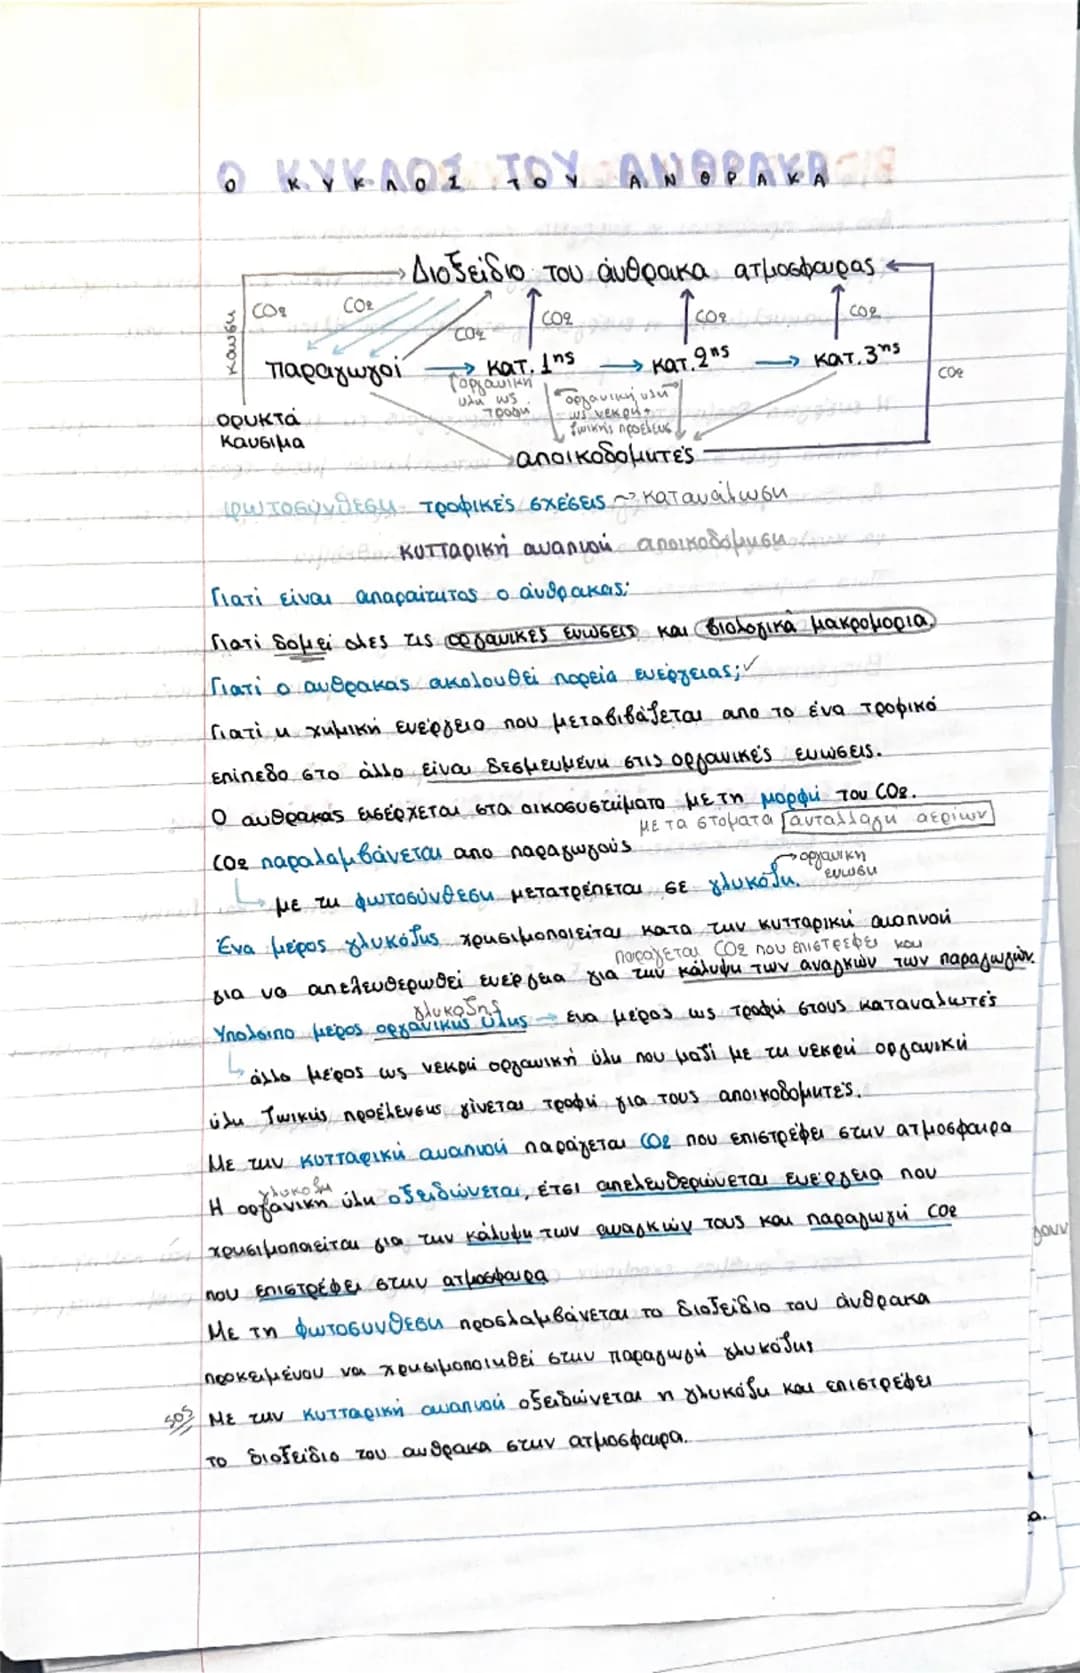 Ο ΚΥΚΛΟΣ ΤΟΥ ΑΝΘΡΑΚΑ
Διοξείδιο του άνθρακα ατμοσφαιρας
καυση
CO2
CO2
CO2
CO2
CO2
CO2
CO2
παραγωγοί → κατ. 1ης → κατ. 2ης → κατ. 3ης
οργανική υλη ως τροφη
οργανική υλη ως νεκρη + ζωικης προελευς
ορυκτά
καυσιμα
αποικοδομητές
φωτοσύνθεση τροφικές σχέσεις ~ κατανάλωση
κυτταρική αναπνοή αποικοδόμηση
Γιατί είναι απαραίτητος ο άνθρακας;
Γιατί δομεί όλες τις οργανικές ενώσεις και βιολογικά μακρομορια
Γιατί ο ανθρακας ακολουθεί πορεία ενέργειας; ✓
Γιατί η χημική ενέργεια που μεταβιβάζεται απο το ένα τροφικό
επίπεδο στο άλλο είναι δεσμευμένη στις οργανικές ενώσεις.
Ο ανθρακάς εισέρχεται στα οικοσυστήματα με τη μορφή του CO2.
με τα στοματα ανταλλαγη αεριων
CO2 παραλαμβάνεται απο παραγωγούς
→ οργανικη ενωση
με τη φωτοσύνθεση μετατρέπεται σε γλυκόζη.
Ένα μέρος γλυκόζης χρησιμοποιείται κατα την κυτταρική αναπνοή
παράγεται CO2 που επιστρέφει και
για να απελευθερωθεί ενέργεια για την κάλυψη των αναγκών των παραγωγών.
γλυκοζης
Υπολοιπο μέρος οργανικής ύλης → ένα μέρος ως τροφή στους καταναλωτές
άλλο μέρος ως νεκρή οργανική ύλη που μαζί με τη νεκρή οργανική
ύλη ζωικής προέλευσης γίνεται τροφή για τους αποικοδομητές.
Με την κυτταρική αναπνοή παράγεται CO2 που επιστρέφει στην ατμοσφαιρα
γλυκοζη
Η οργανική ύλη οξειδώνεται, έτσι απελευθερώνεται ενέργεια που
χρησιμοποιείται για την κάλυψη των αναγκών τους και παραγωγή CO2
που επιστρέφει στην ατμοσφαιρα
Με τη φωτοσυνθεση προσλαμβάνεται το διοξείδιο του άνθρακα
προκειμένου να χρησιμοποιηθεί στην παραγωγή γλυκόζης
SOS Με την κυτταρική αναπνοή οξειδώνεται η γλυκόζη και επιστρέφει
το διοξείδιο του ανθρακα στην ατμόσφαιρα.